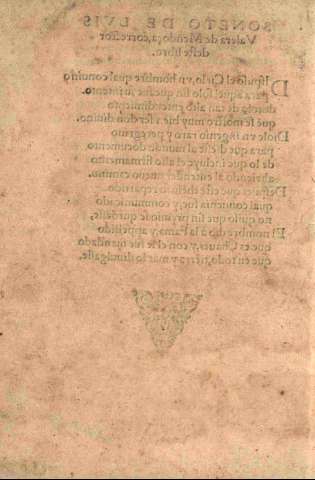 SONETO DE LVIS
Valera de Mendoça, corrector
deste libro.
el Cielo, vn hombre qual conuino
para aquel solo fin que de su intento,
dotole de tan alto entendimiento
que se mostro muy bie ser don diuino.
Diole vn ingenio raro y peregrino
para que diesse al mundo documento
de lo que incluye el alto firmamento
abriendo al entender nueuo camino.
Despues que este thesoro repartido
qual conuenia fue, y comunicado
no quiso que sin premio se quedasse,
El nombre dio à la Fama, y appellido
que es Chaues, y con este fue mandado
que en todo, tierra y mar lo diuulgasse.